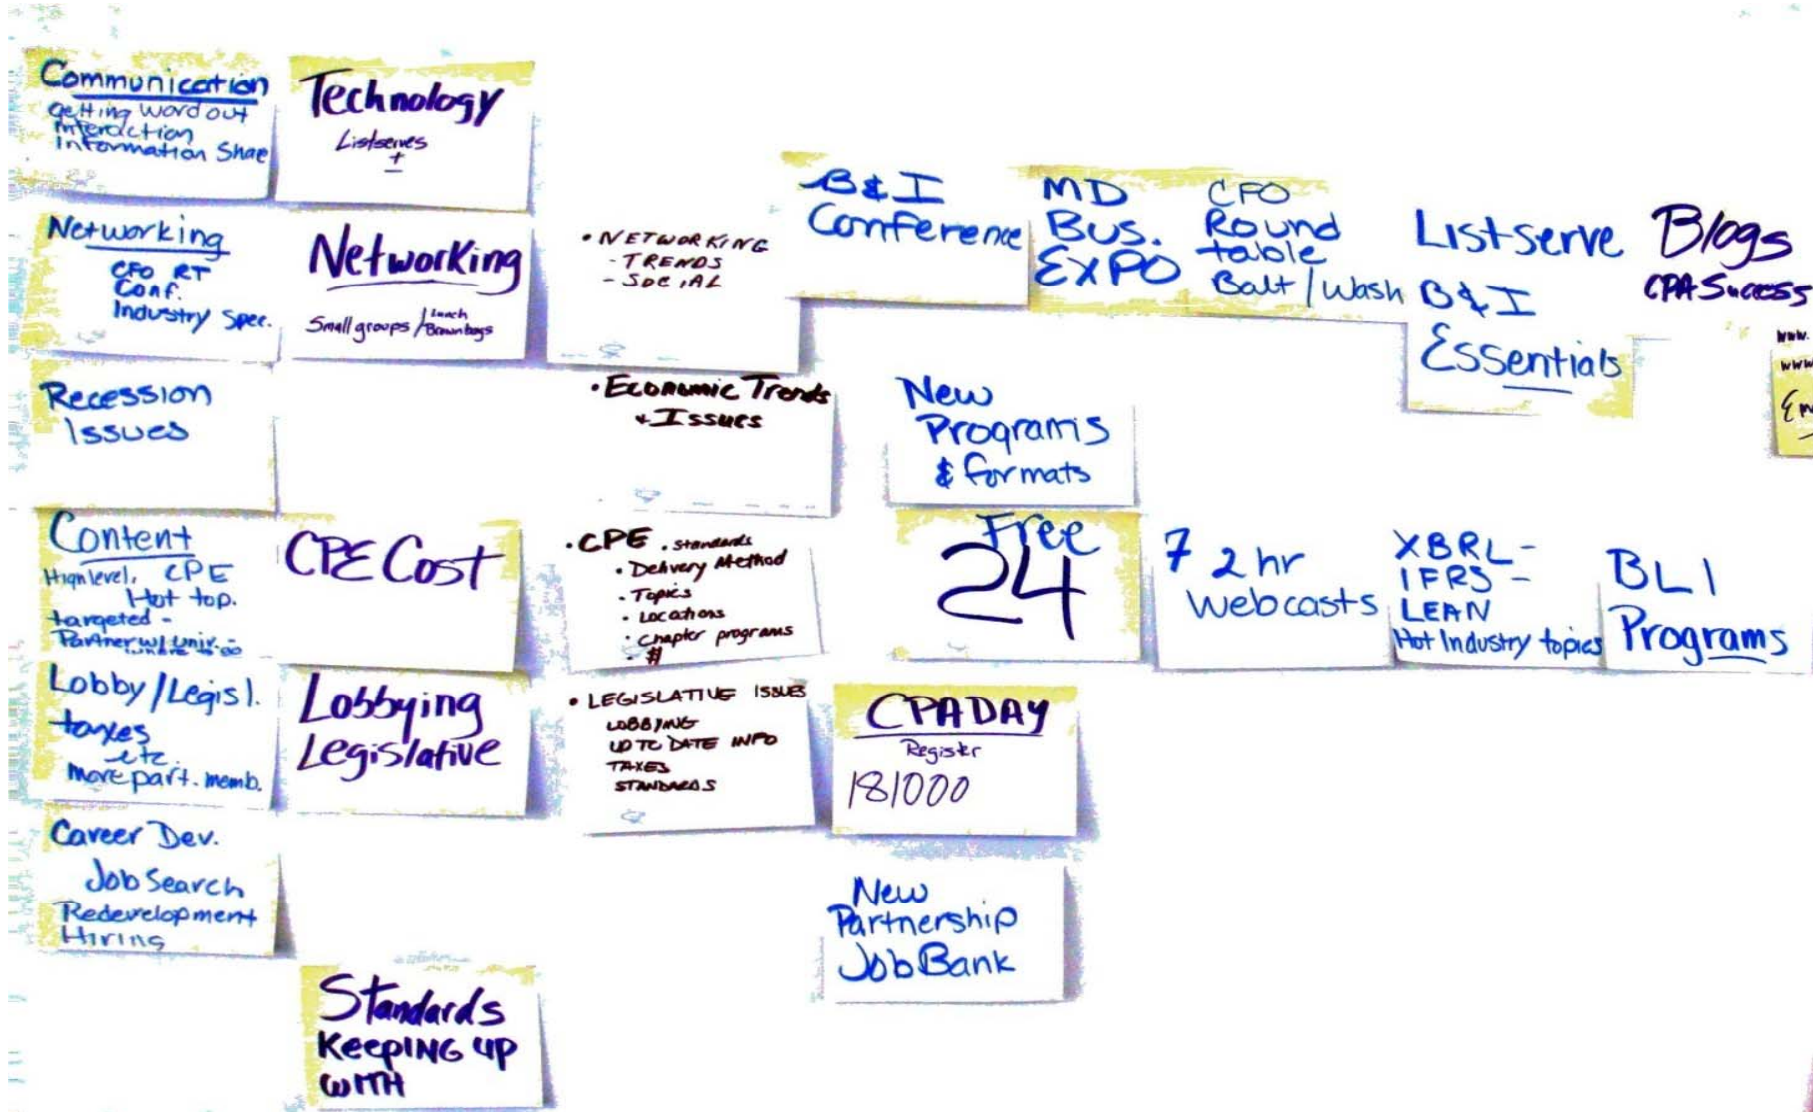 Communication
getting word out
interaction
Information Shae
Technology
Listserves
+
-
Networking
CFO RT
Conf.
Industry Spec.
Networking
Small groups / Lunch
Brownbags
• NETWORKING
- TRENDS
- SOCIAL
B & I
Conference
MD
Bus.
EXPO
CFO
Round
table
Balt / Wash
Listserve
B & I
Essentials
Blogs
CPA Success
www.
www
Recession
Issues
• Economic Trends
+ Issues
New
Programs
& formats
Content
High level, CPE
Hot top.
targeted -
Partner w/ Univ. -
CPE Cost
• CPE . standards
• Delivery Method
• Topics
• Locations
• Chapter programs
• $
Free
24
7 2 hr
webcasts
XBRL -
IFRS -
LEAN
Hot Industry topics
BLI
Programs
Lobby / Legisl.
taxes
etc.
more part. memb.
Lobbying
Legislative
• LEGISLATIVE ISSUES
LOBBYING
UP TO DATE INFO
TAXES
STANDARDS
CPA DAY
Register
181000
Career Dev.
Job Search
Redevelopment
Hiring
New
Partnership
Job Bank
Standards
Keeping up
with